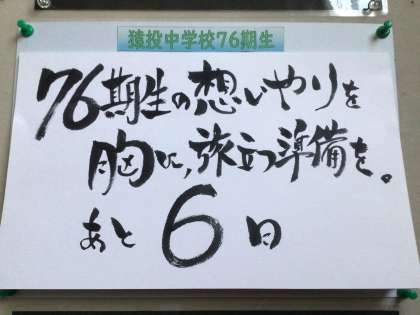 猿投中学校76期生
76期生の想いやりを
胸に,旅立つ準備を。
あと 6 日